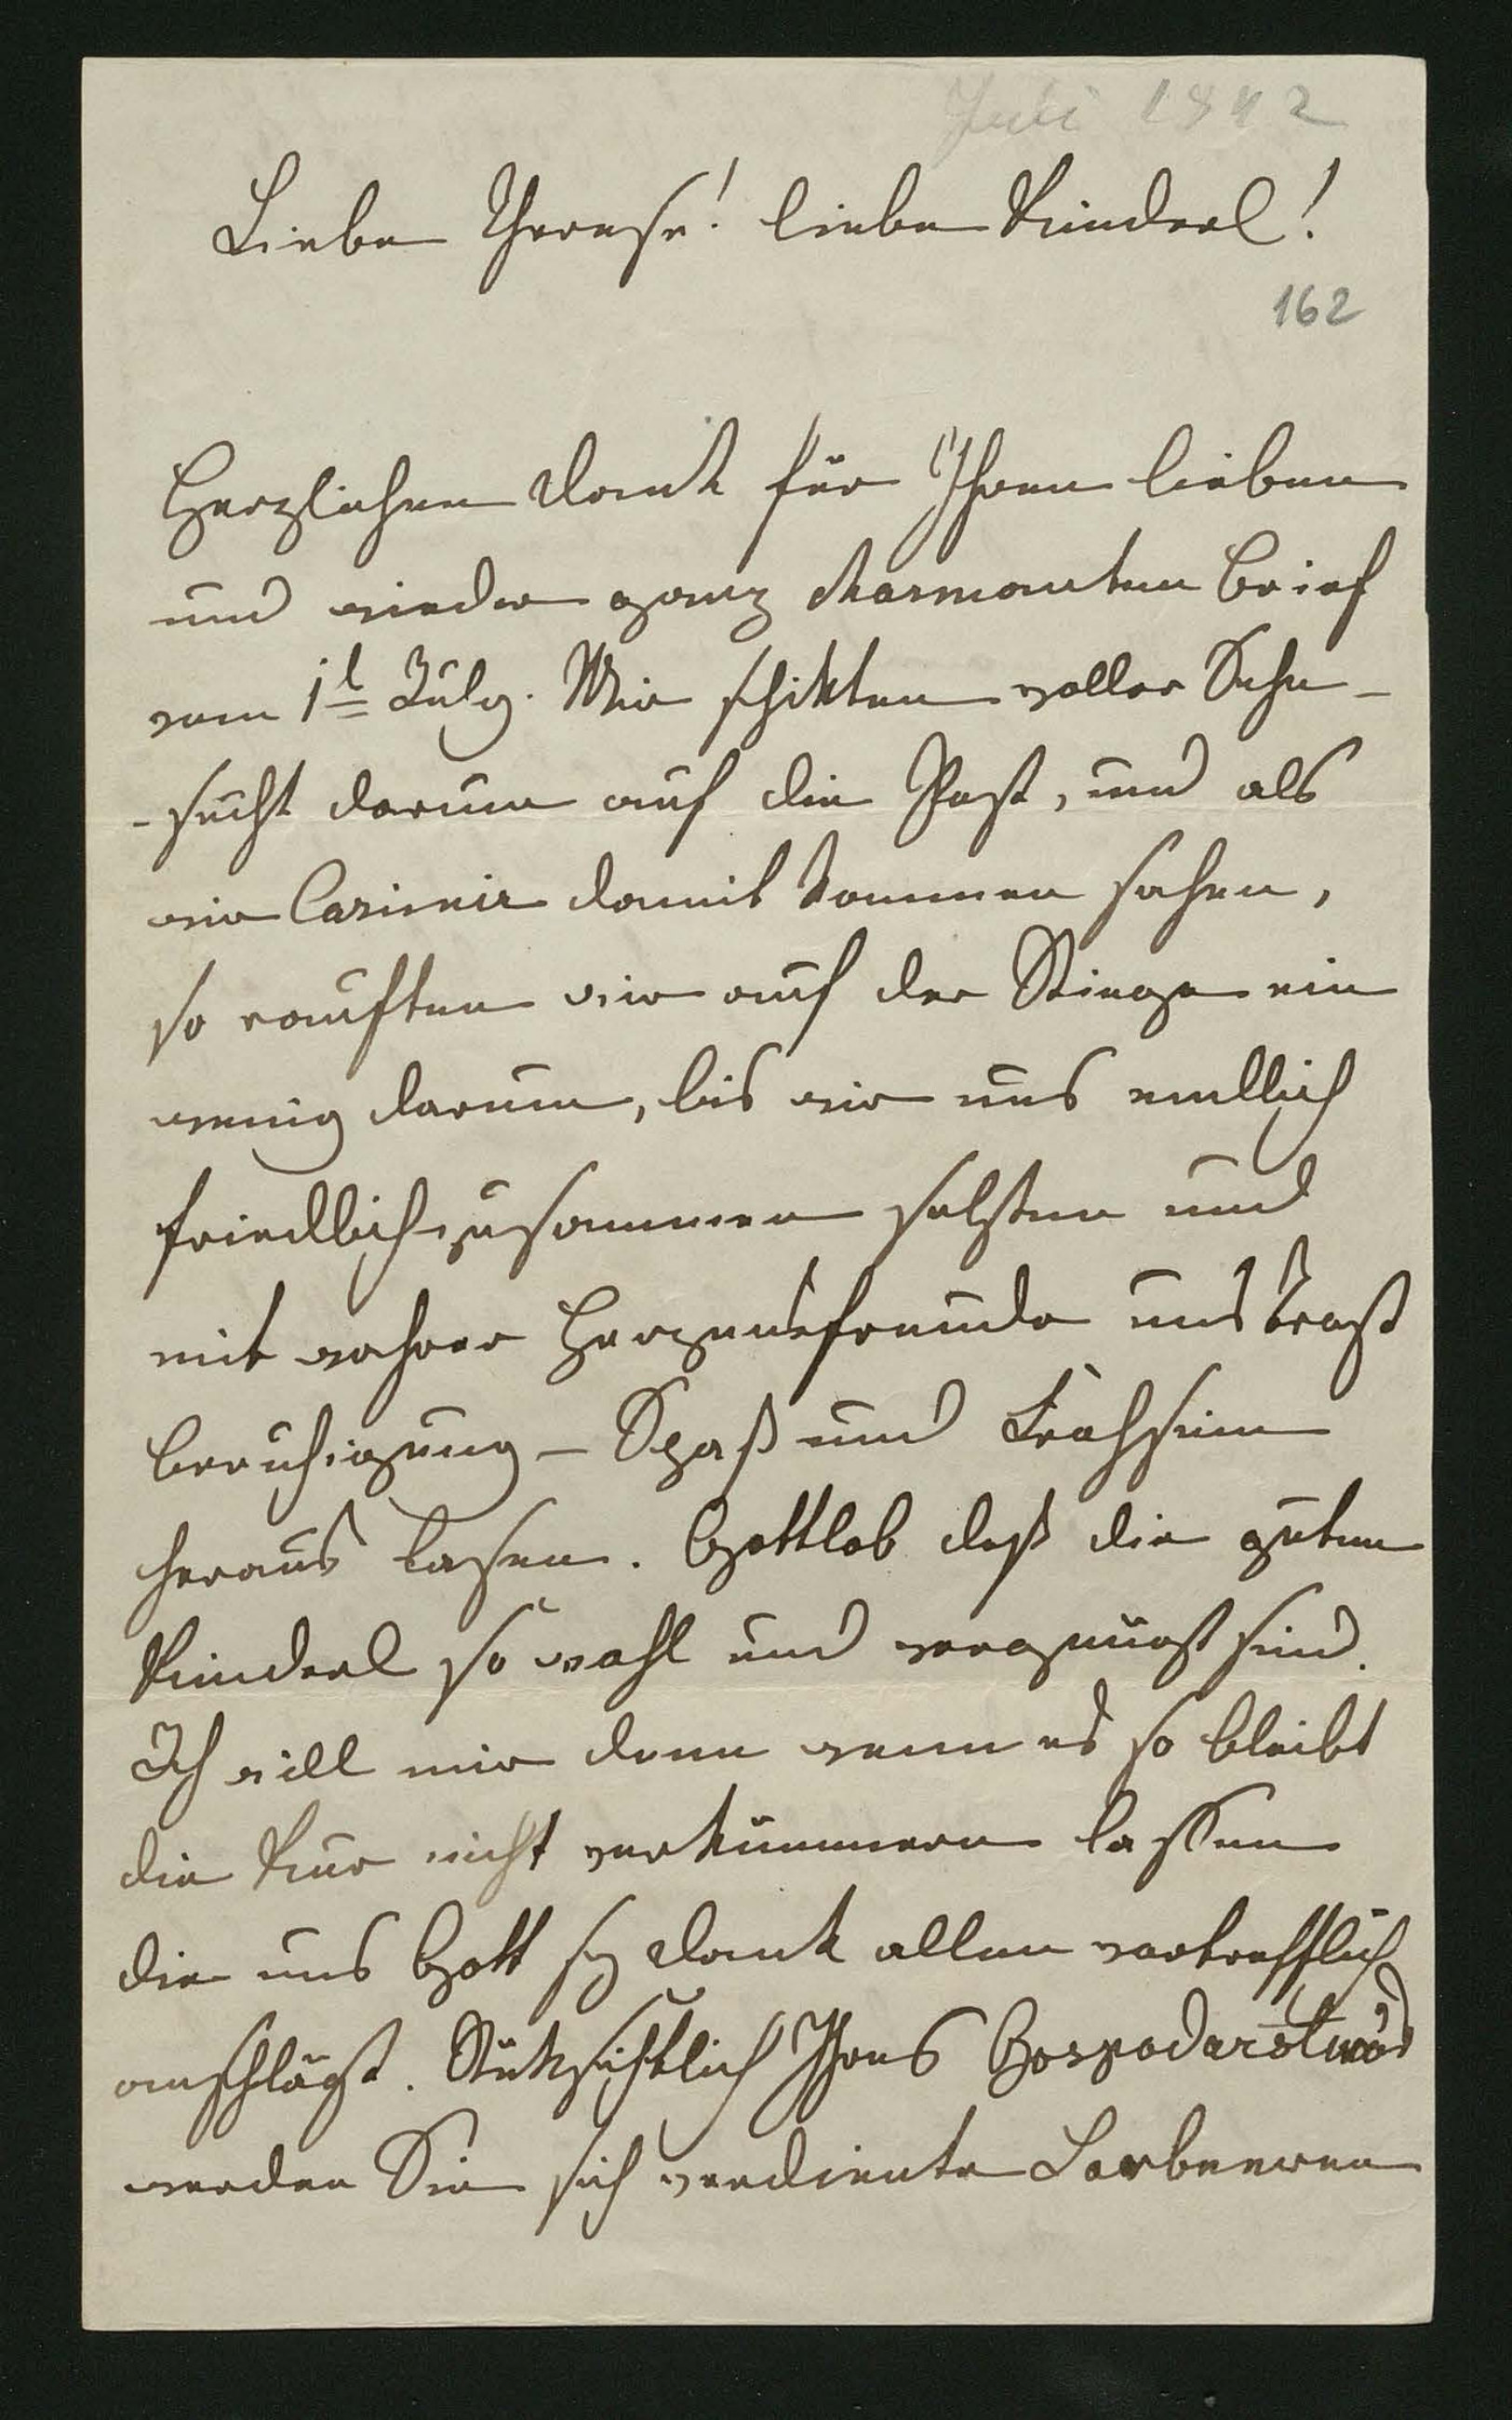 Juli 1842
Liebe Therese! liebe Kinderl!
162
Herzlichen Dank für Ihren lieben
und wieder ganz charmanten Brief
vom 1t July. Wir schikten voller Sehn-
-sucht darum auf die Post, und als
wir Casimir damit kommen sahen,
so rauften wir auf der Stiege ein
wenig darum, bis wir uns endlich
friedlich zusammen setzten und
mit wahrer Herzensfreude uns Trost
Beruhigung – Spaß und Frohsinn
heraus lasen. Gottlob daß die guten
Kinderl so wohl und vergnügt sind.
Ich will mir denn wenn es so bleibt
die Kur nicht verkümmern lassen
die uns Gott sey Dank allen vortrefflich
anschlägt. Rüksichtlich Ihres Gospodarstwos
werden Sie sich verdiente Lorbeeren